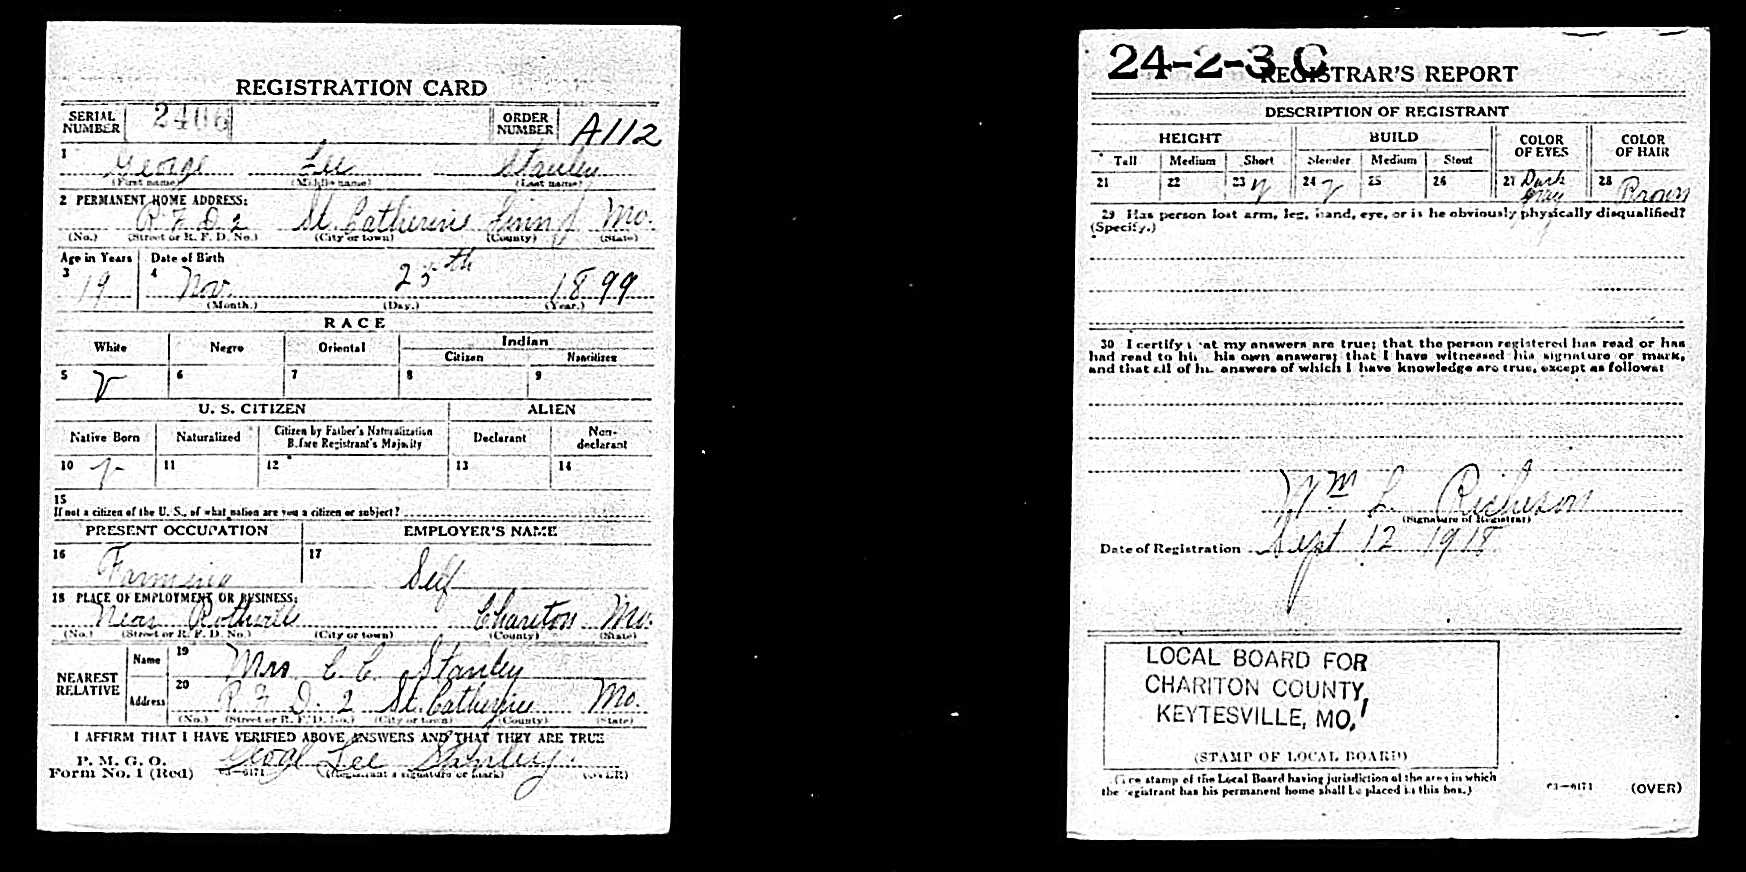 REGISTRATION CARD
SERIAL NUMBER 2406 ORDER NUMBER A112
1 George Lee Stanley
(First name) (Middle name) (Last name)
2 PERMANENT HOME ADDRESS:
R F D 2 St. Catherine Linn Mo.
(No.) (Street or R. F. D. No.) (City or town) (County) (State)
Age in Years Date of Birth
3 19 4 Nov. 25th 1899
(Month.) (Day.) (Year.)
RACE
White Negro Oriental Indian
Citizen Noncitizen
5 6 7 8 9
U. S. CITIZEN ALIEN
Native Born Naturalized Citizen by Father's Naturalization Before Registrant's Majority Declarant Non-declarant
10 11 12 13 14
15
If not a citizen of the U. S., of what nation are you a citizen or subject?
PRESENT OCCUPATION EMPLOYER'S NAME
16 Farming 17 Self
18 PLACE OF EMPLOYMENT OR BUSINESS:
Near Rothville Chariton Mo.
(No.) (Street or R. F. D. No.) (City or town) (County) (State)
NEAREST RELATIVE
Name 19 Mrs C. C. Stanley
Address 20 R F D. 2 St. Catherine Mo.
(No.) (Street or R. F. D. No.) (City or town) (County) (State)
I AFFIRM THAT I HAVE VERIFIED ABOVE ANSWERS AND THAT THEY ARE TRUE
P. M. G. O.
Form No. 1 (Red) 03-6171 George Lee Stanley (Registrant's signature or mark) (OVER)
24-2-3 C
REGISTRAR'S REPORT
DESCRIPTION OF REGISTRANT
HEIGHT BUILD COLOR OF EYES COLOR OF HAIR
Tall Medium Short Slender Medium Stout
21 22 23 24 25 26 27 Dark Gray 28 Brown
29 Has person lost arm, leg, hand, eye, or is he obviously physically disqualified?
(Specify.)
30 I certify that my answers are true; that the person registered has read or has
had read to him his own answers; that I have witnessed his signature or mark,
and that all of his answers of which I have knowledge are true, except as follows:
Wm L. Richeson
(Signature of Registrar)
Date of Registration Sept 12 1918
LOCAL BOARD FOR
CHARITON COUNTY,
KEYTESVILLE, MO.
(STAMP OF LOCAL BOARD)
(The stamp of the Local Board having jurisdiction of the area in which
the registrant has his permanent home shall be placed in this box.)
03-6171 (OVER)